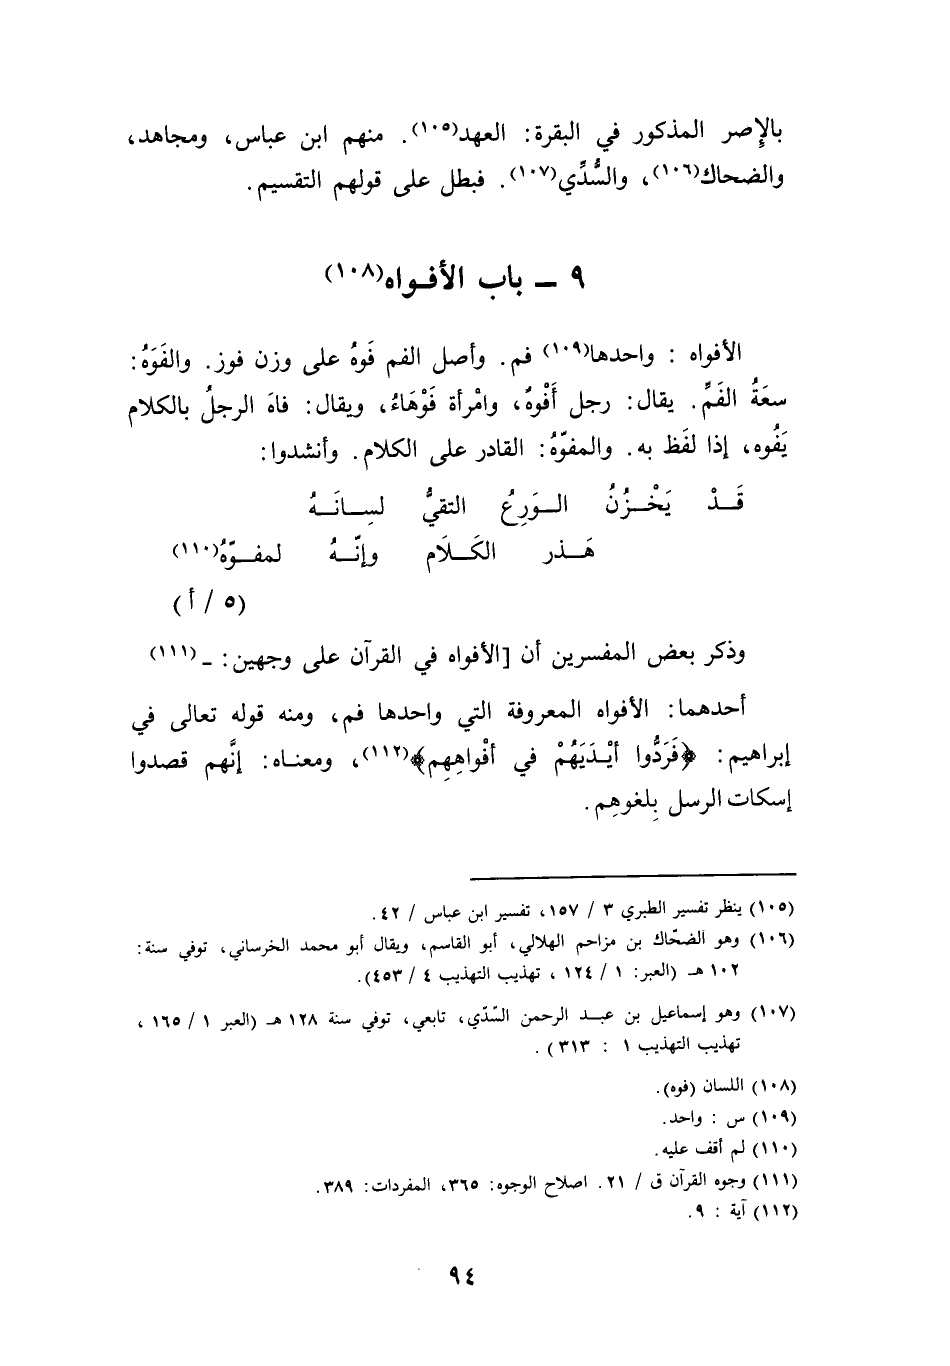 بالإِصر المذكور في البقرة: العهد(١٠٥). منهم ابن عباس، ومجاهد،
والضحاك(١٠٦)، والسُّدِّي(١٠٧). فبطل على قولهم التقسيم.
٩ ــ باب الأفـواه(١٠٨)
الأفواه : واحدها(١٠٩) فم. وأصل الفم فَوهُ على وزن فوز. والفَوَهُ:
سعَةُ الفَمِّ. يقال: رجل أَفْوهُ، وامْرأة فَوْهَاءُ، ويقال: فاهَ الرجلُ بالكلام
يَفُوه، إذا لفَظ به. والمفوّهُ: القادر على الكلام. وأنشدوا:
قَــدْ يَخْــزُنُ الــوَرِعُ التقيُّ لسِــانَــهُ
هَــذر الكَــلَام وإنّــهُ لمفــوّهُ(١١٠)
(٥ / أ)
وذكر بعض المفسرين أن [الأفواه في القرآن على وجهين: ـ (١١١)
أحدهما: الأفواه المعروفة التي واحدها فم، ومنه قوله تعالى في
إبراهيم: ﴿فَرَدُّوا أيْـدَيَهُمْ في أفْواهِهِم﴾(١١٢)، ومعنـاه: إنَّهم قصدوا
إسكات الرسل بِلغوهِم.
(١٠٥) ينظر تفسير الطبري ٣ / ١٥٧، تفسير ابن عباس / ٤٢.
(١٠٦) وهو الضحّاك بن مزاحم الهلالي، أبو القاسم، ويقال أبو محمد الخرساني، توفي سنة:
١٠٢ هـ (العبر: ١ / ١٢٤ ، تهذيب التهذيب ٤ / ٤٥٣).
(١٠٧) وهو إسماعيل بن عبـد الرحمن السّدّي، تابعي، توفي سنة ١٢٨ هـ (العبر ١ / ١٦٥ ،
تهذيب التهذيب ١ : ٣١٣) .
(١٠٨) اللسان (فوه).
(١٠٩) س : واحد.
(١١٠) لم أقف عليه.
(١١١) وجوه القرآن ق / ٢١. اصلاح الوجوه: ٣٦٥، المفردات: ٣٨٩.
(١١٢) آية : ٩.
٩٤